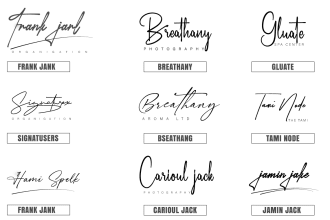 Frank janl
ORGANIZATION
FRANK JANK
Breathany
PHOTOGRAPHY
BREATHANY
Gluate
SPA CENTER
GLUATE
Signatrox
ORGANIZATION
SIGNATUSERS
Breathany
AROMA LTD
BSEATHANG
Tami Node
THE TAMI
TAMI NODE
Hami Spelk
FRANK JANK
Carioul jack
PHOTOGRAPHY
CARIOUL JACK
jamin jake
JAMIN JACK